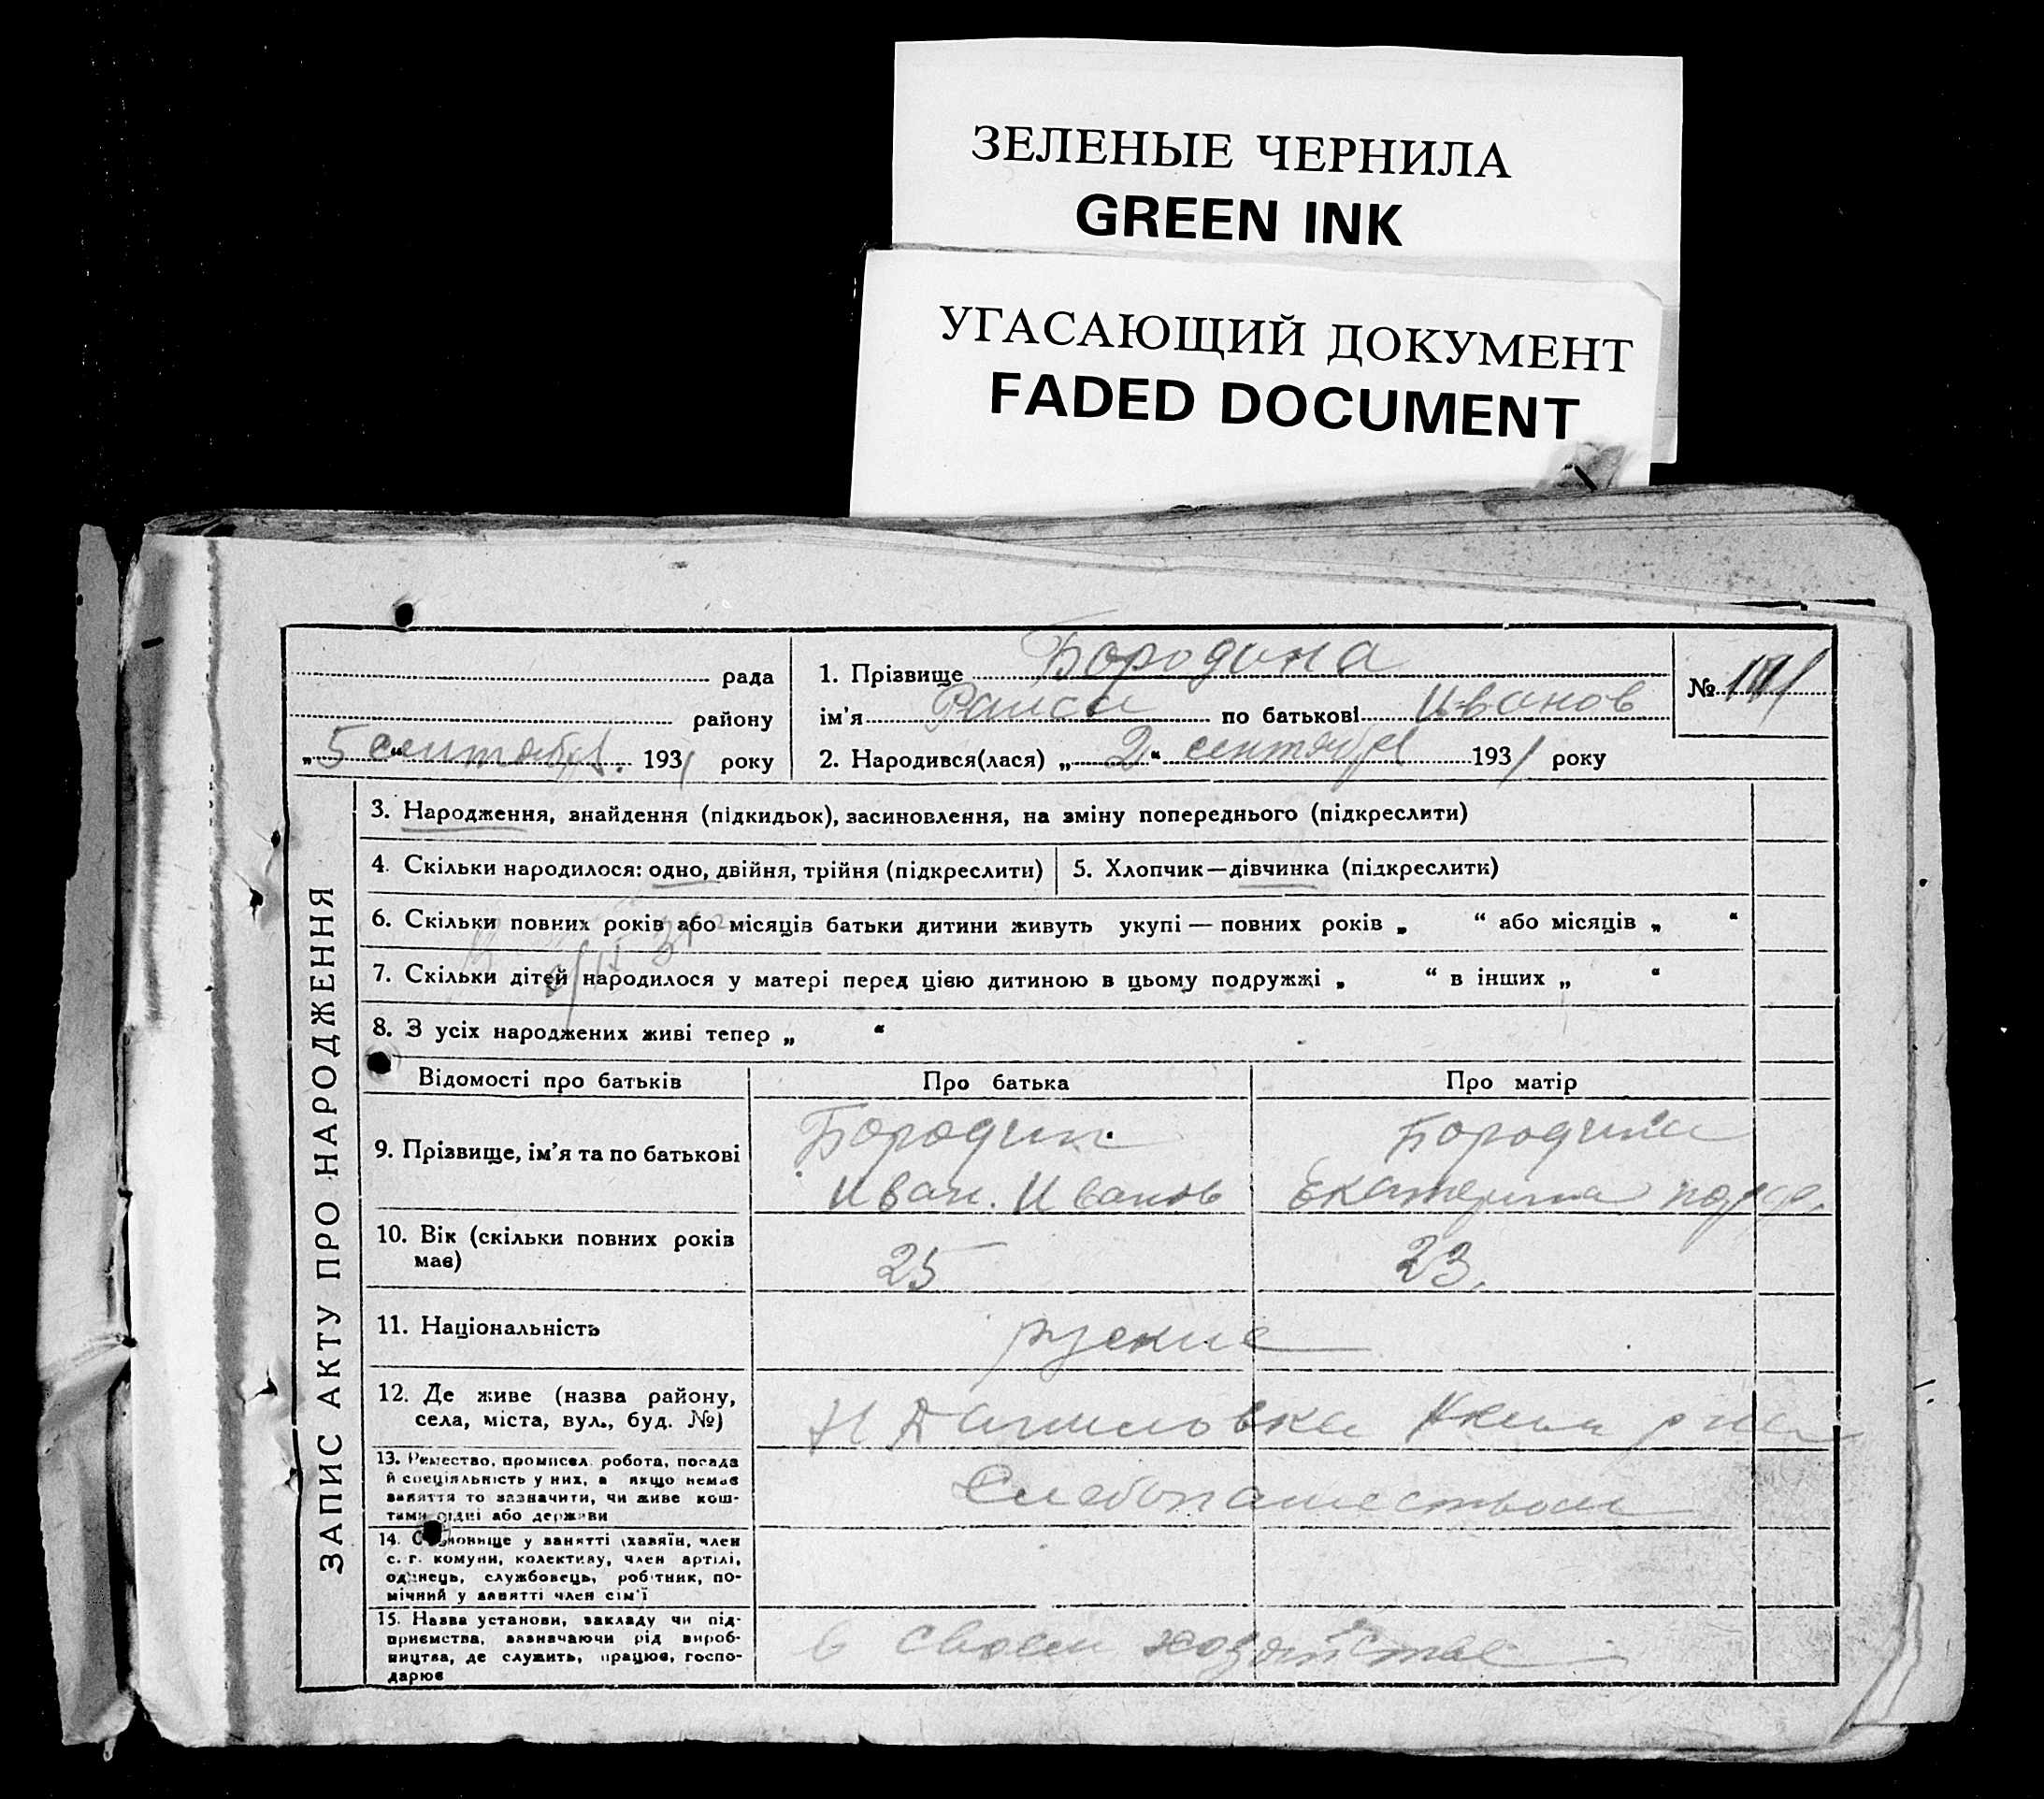 ЗЕЛЕНЫЕ ЧЕРНИЛА
GREEN INK
УГАСАЮЩИЙ ДОКУМЕНТ
FADED DOCUMENT
рада
району
„5“ сентября. 1931 року
1. Прізвище Бородина
ім'я Раиса по батькові Иванов
2. Народився(лася) „2“ сентября 1931 року
№
ЗАПИС АКТУ ПРО НАРОДЖЕННЯ
3. Народження, знайдення (підкидьок), засиновлення, на зміну попереднього (підкреслити)
4. Скільки народилося: одно, двійня, трійня (підкреслити)
5. Хлопчик—дівчинка (підкреслити)
6. Скільки повних років або місяців батьки дитини живуть укупі — повних років „ “ або місяців „ “
7. Скільки дітей народилося у матері перед цією дитиною в цьому подружжі „ “ в інших „ “
8. З усіх народжених живі тепер „ “
Відомості про батьків
Про батька
Про матір
9. Прізвище, ім'я та по батькові
Бородин
Иван. Иванов
Бородина
Екатерина
10. Вік (скільки повних років
має)
25
23.
11. Національність
руские
12. Де живе (назва району,
села, міста, вул., буд. №)
Н Даниловка
13. Ремество, промисел, робота, посада
й спеціяльність у них, а якщо немає
заняття то зазначити, чи живе кош-
тами рідні або держави
Хлебопашеством
14. Становище у занятті (хазяїн, член
с.-г. комуни, колективу, член артілі,
одинець, службовець, робітник, по-
мічний у занятті член сім'ї
15. Назва установи, закладу чи під-
приємства, зазначаючи рід вироб-
ництва, де служить, працює, госпо-
дарює
в своем хозяйстве